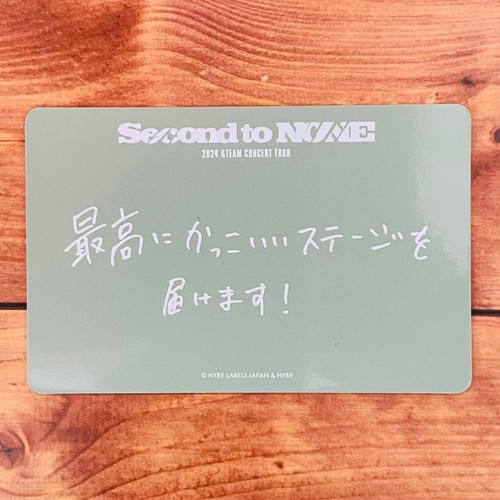 Second to NONE
2024 &TEAM CONCERT TOUR
最高にかっこいいステージを
届けます!
© HYBE LABELS JAPAN & HYBE